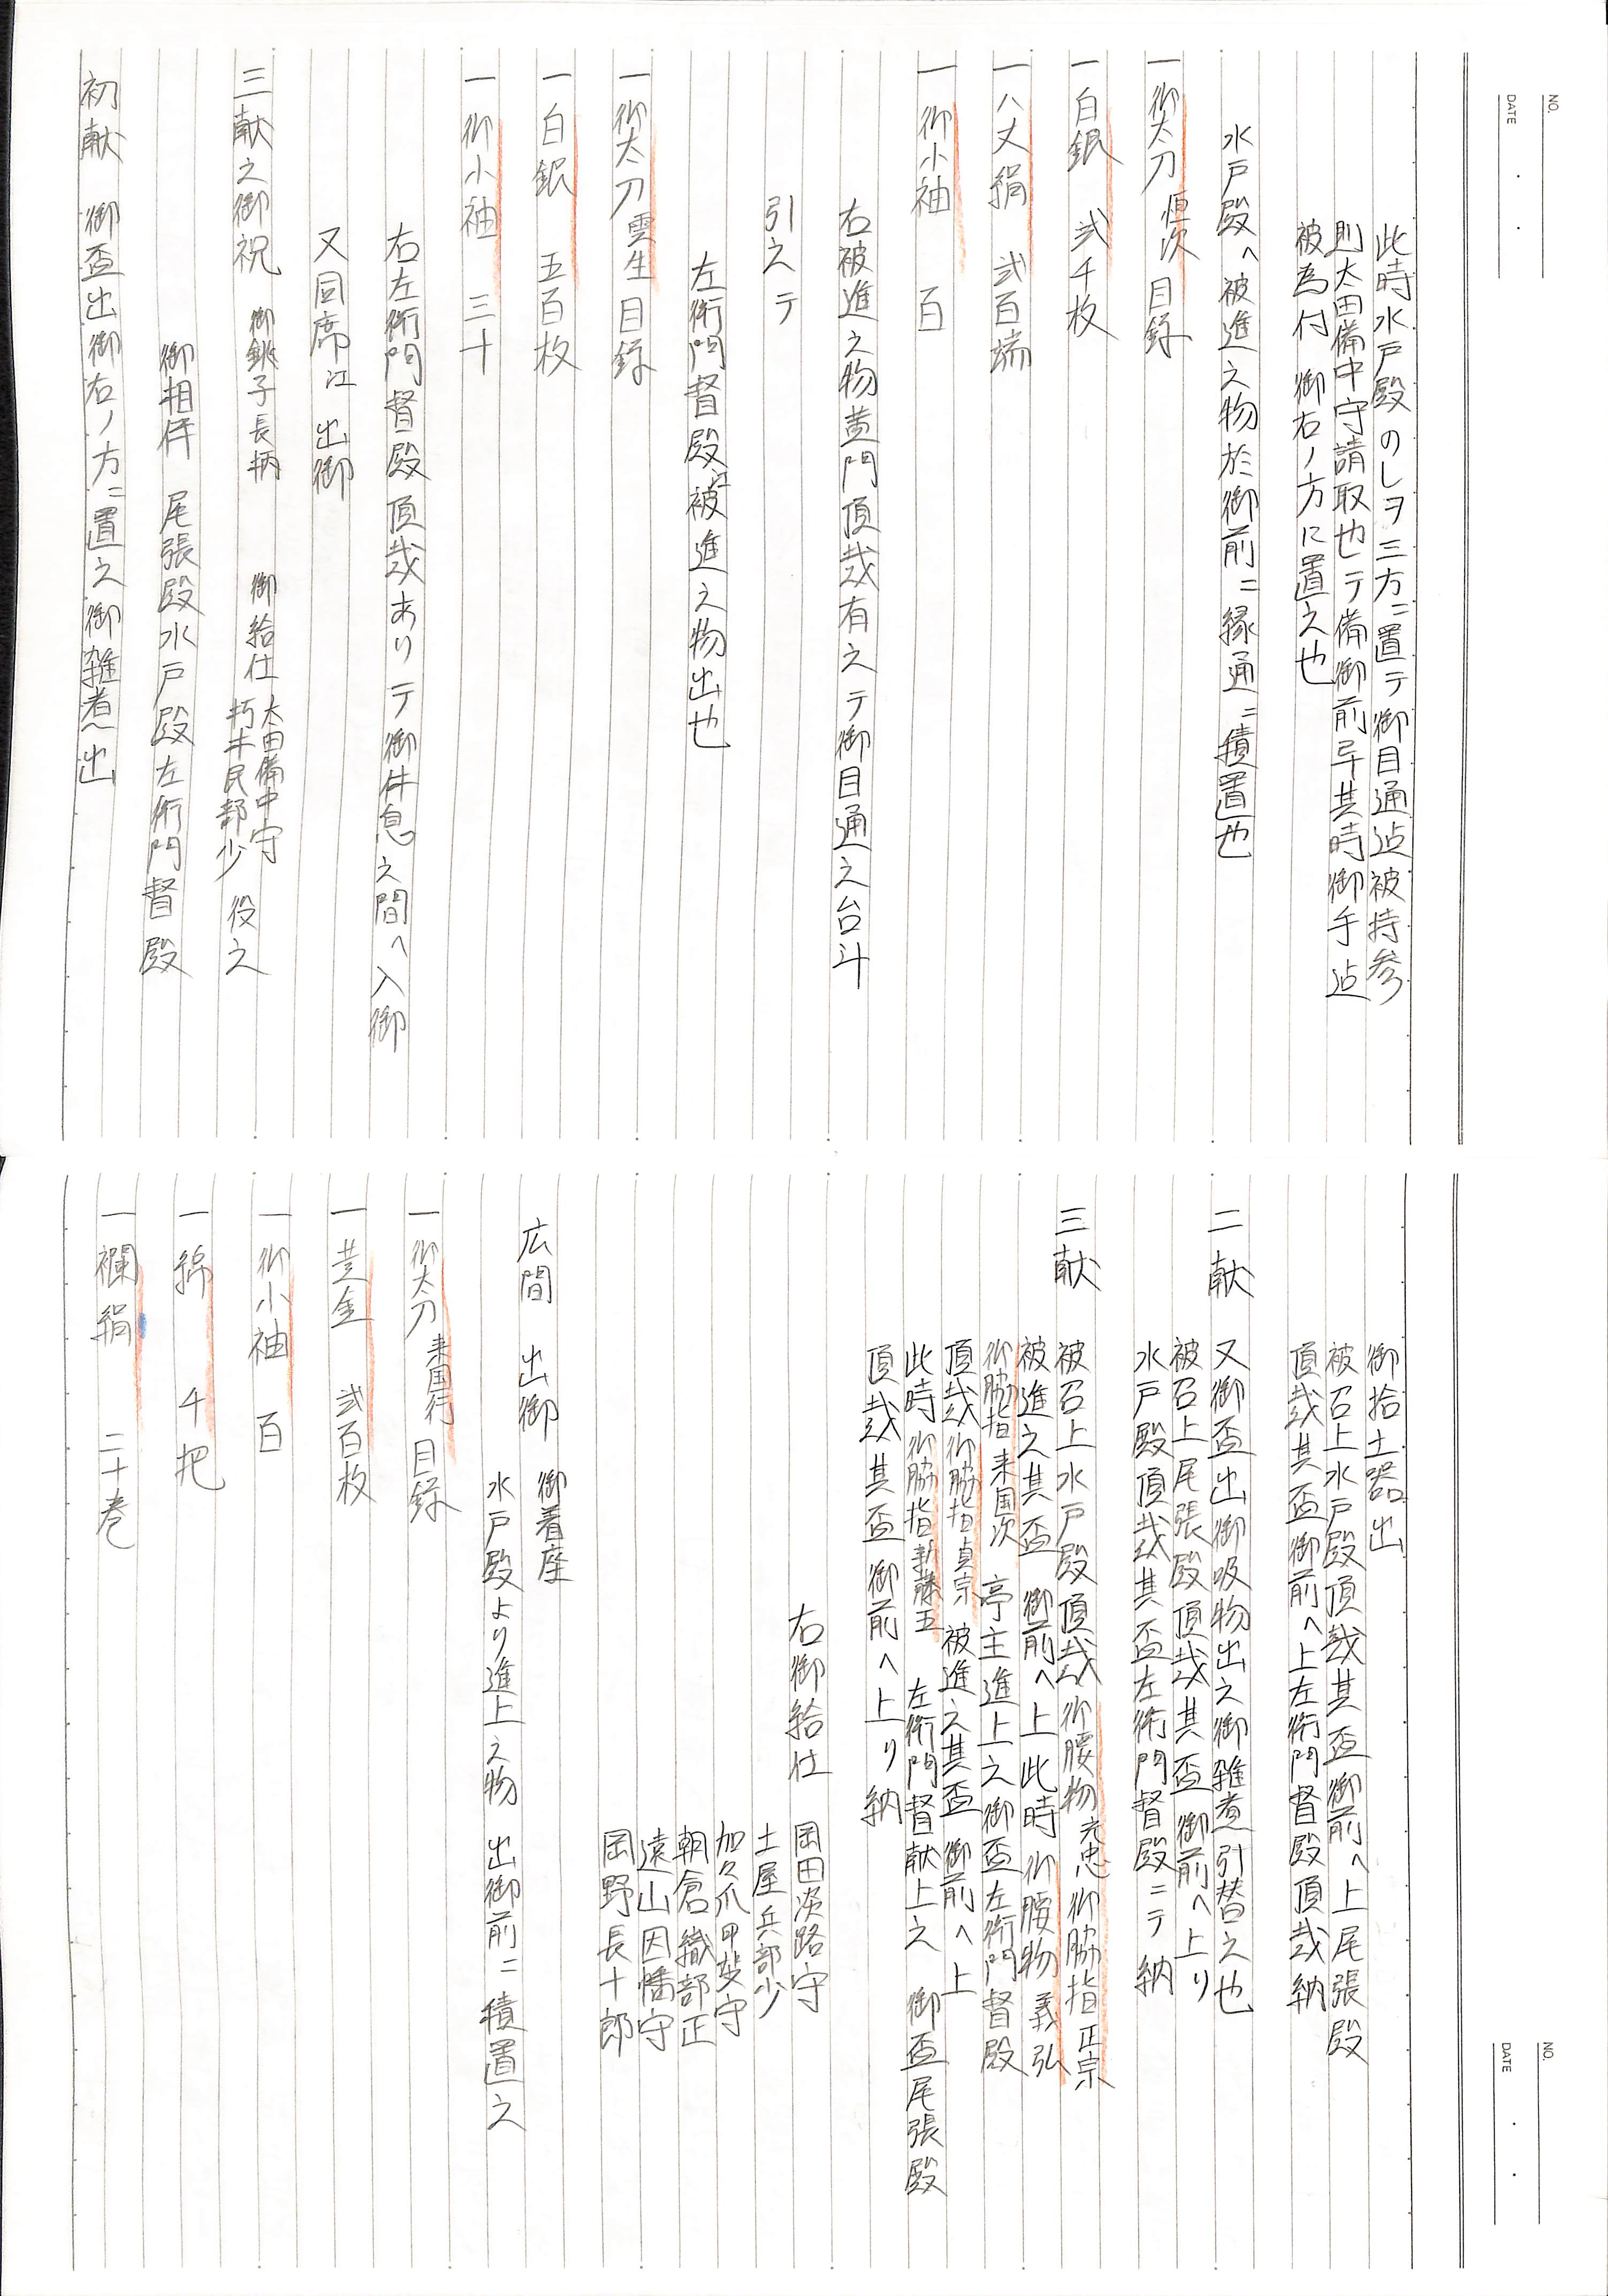 NO.
DATE
此時水戸殿のしヲ三方ニ置テ御目通迠被持参
則太田備中守請取也テ備御前号其時御手迠
被為付 御右ノ方に置之也
水戸殿ヘ被進之物於御前ニ縁通ニ積置也
一 御太刀 恒次 目録
一 白銀 弐千枚
一 八丈絹 弐百端
一 御小袖 百
右被進之物黄門頂戴有之テ御目通之台斗
引之テ
左衛門督殿江被進之物出也
一 御太刀 雲生 目録
一 白銀 五百枚
一 御小袖 三十
右左衛門督殿頂戴ありテ御休息之間ヘ入御
又同席江 出御
三献之御祝 御銚子長柄 御給仕 太田備中守 朽木民部少 役之
御相伴 尾張殿水戸殿左衛門督殿
初献 御盃出御右ノ方ニ置之御雑煮出
NO.
DATE
御拾土器出
被召上水戸殿頂戴其盃御前ヘ上尾張殿
頂戴其盃御前ヘ上左衛門督殿頂戴納
二献 又御盃出御吸物出之御雑煮引替之也
被召上尾張殿頂戴其盃御前ヘ上り
水戸殿頂戴其盃左衛門督殿ニテ納
三献 被召上水戸殿頂戴御腰物光忠御脇指正宗
被進之其盃御前ヘ上此時御腰物義弘
御脇指来国次 亭主進上之御盃左衛門督殿
頂戴御脇指貞宗被進之其盃御前ヘ上
此時御脇指新藤五 左衛門督献上之 御盃尾張殿
頂戴其盃御前ヘ上り納
右御給仕 岡田淡路守
土屋兵部少
加々爪甲斐守
朝倉織部正
遠山因幡守
岡野長十郎
広間 出御 御着座
水戸殿より進上之物 出御前ニ積置之
一 御太刀 来国行 目録
一 黄金 弐百枚
一 御小袖 百
一 綿 千把
一 襴絹 二十巻